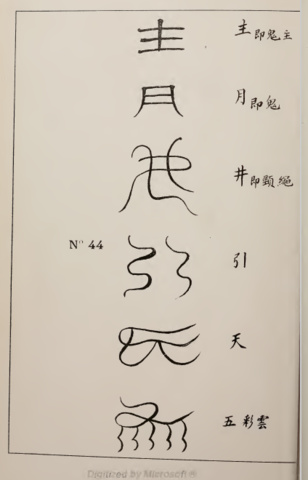 主即鬼主
月即鬼
井即顯絕
Nº 44
引
天
五彩雲
Digitized by Microsoft®